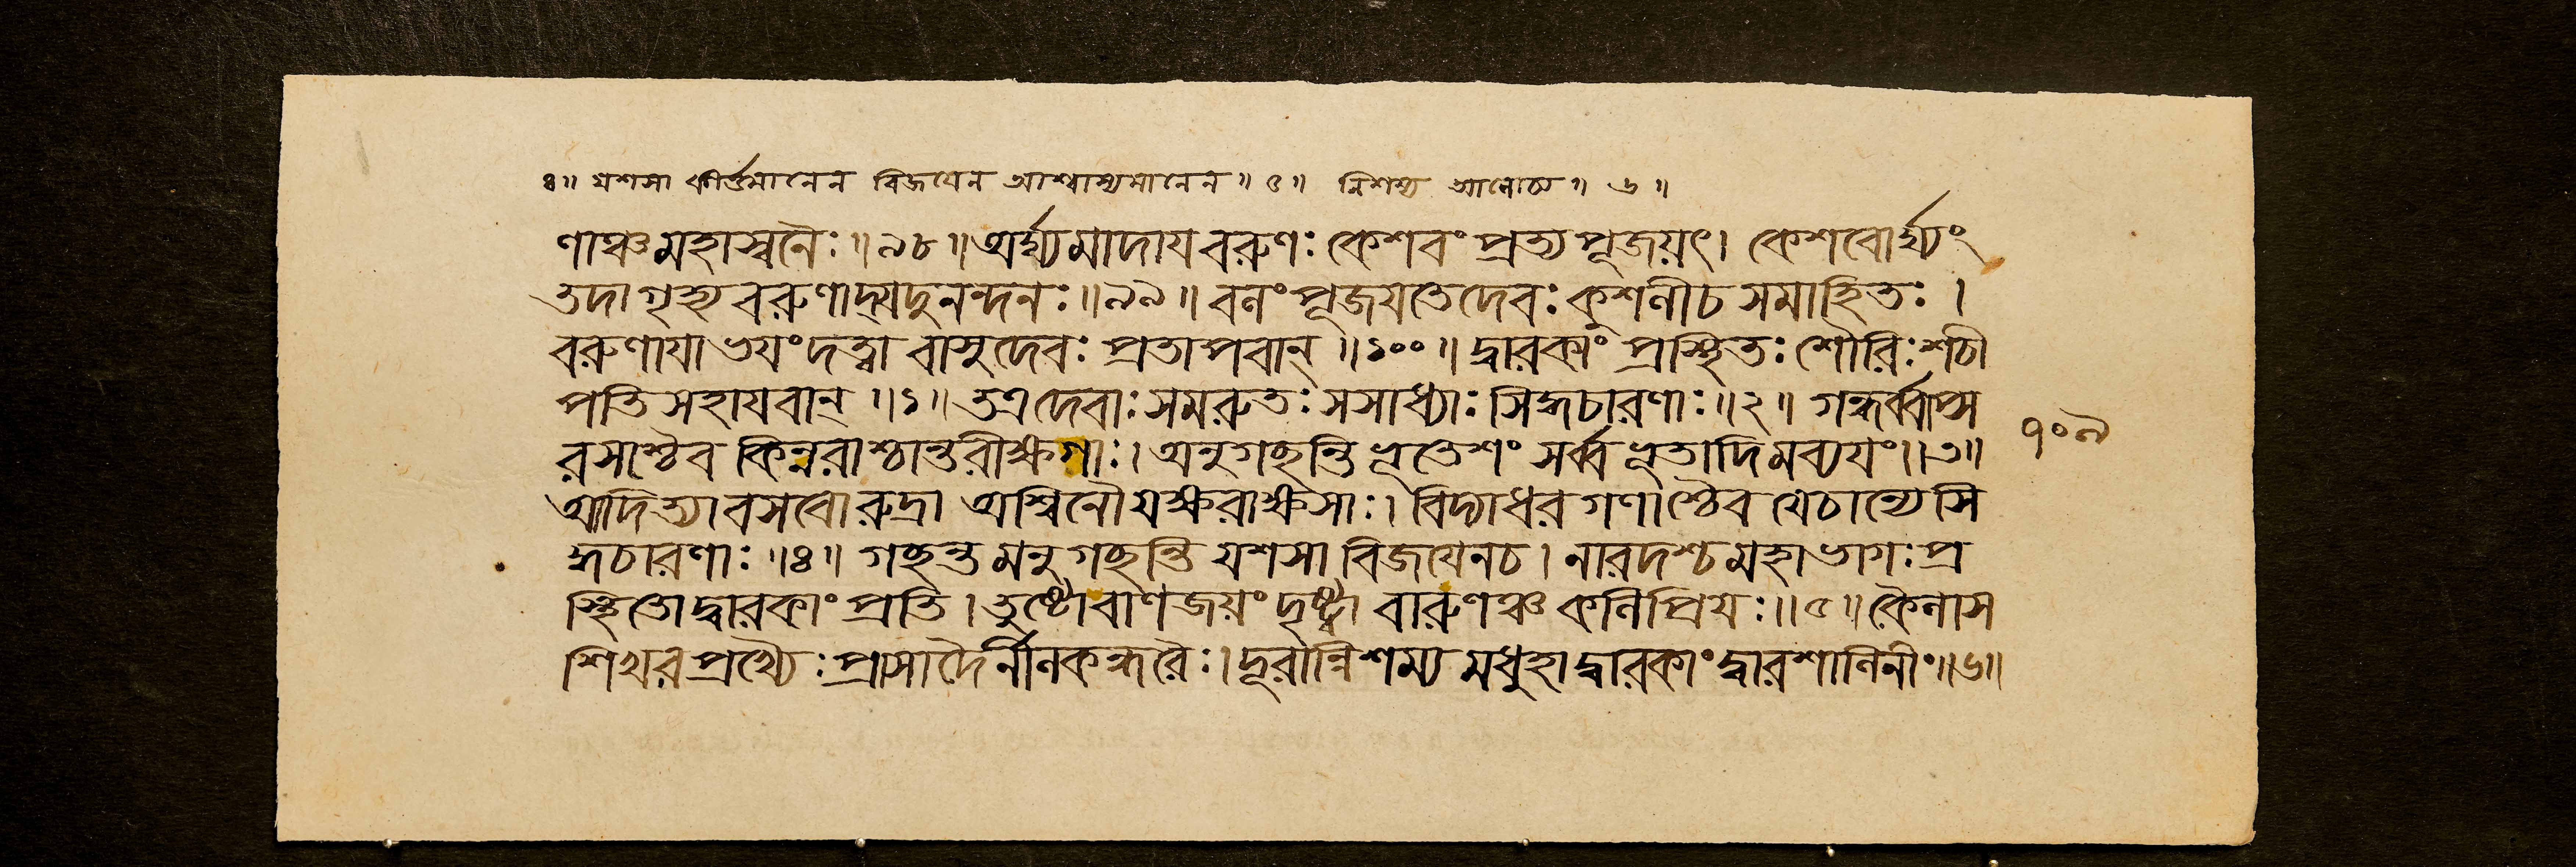 ৪॥ যশসা কীর্ত্তমানেন বিজযেন আশ্বাস্যমানেন॥ ৫॥ নিশম্য আলোচ্য॥ ৬॥
ণাঞ্চমহাস্বনৈঃ॥৯৮॥অর্ঘ্যমাদাযবরুণঃ কেশবং প্রত্যপূজয়ৎ। কেশবোর্ঘ্যং
তদাগৃহ্য বরুণাদ্যদুনন্দনঃ॥৯৯॥ বলং পূজযতেদেবঃ কুশলীচ সমাহিতঃ।
বরুণাযাভযংদত্বা বাসুদেবঃ প্রতাপবান্॥১০০॥ দ্বারকাং প্রস্থিতঃ শৌরিঃ শচী
পতিসহাযবান্॥১॥ তত্রদেবাঃ সমরুতঃ সসাধ্যাঃ সিদ্ধচারণাঃ॥২॥ গন্ধর্ব্বাপ্স
রসশ্চৈব কিন্নরাশ্চান্তরীক্ষগাঃ। অনুগচ্ছন্তি ভূতেশং সর্ব্বভূতাদিমব্যযং॥৩॥
১০৯
আদিত্যাবসবোরুদ্রা অশ্বিনৌযক্ষরাক্ষসাঃ। বিদ্যাধরগণাশ্চৈব যেচান্যেসি
দ্ধচারণাঃ॥৪॥ গচ্ছন্তমনুগচ্ছন্তি যশসা বিজযেনচ। নারদশ্চমহাভাগঃ প্র
স্থিতোদ্বারকাং প্রতি। তুষ্টোবাণজয়ংদৃষ্ট্বা বারুণঞ্চ কলিপ্রিযঃ॥৫॥ কৈলাস
শিখরপ্রখ্যৈঃ প্রাসাদৈর্নীলকন্ধরৈঃ। দূরান্নিশম্য মধুহাদ্বারকাংদ্বারশালিনীং॥৬॥